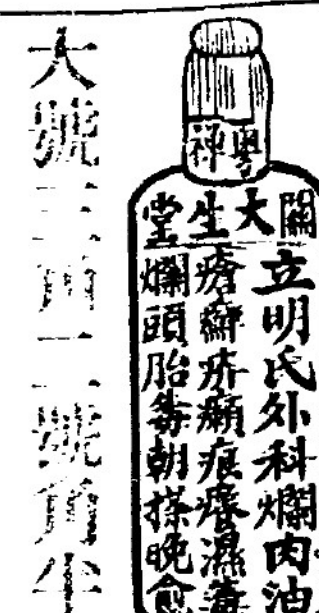 粵禪
關大生堂
立明氏外科爛肉油
瘡癬疥癩痕癢濕毒
爛頭胎毒朝搽晚愈
大號角號角半